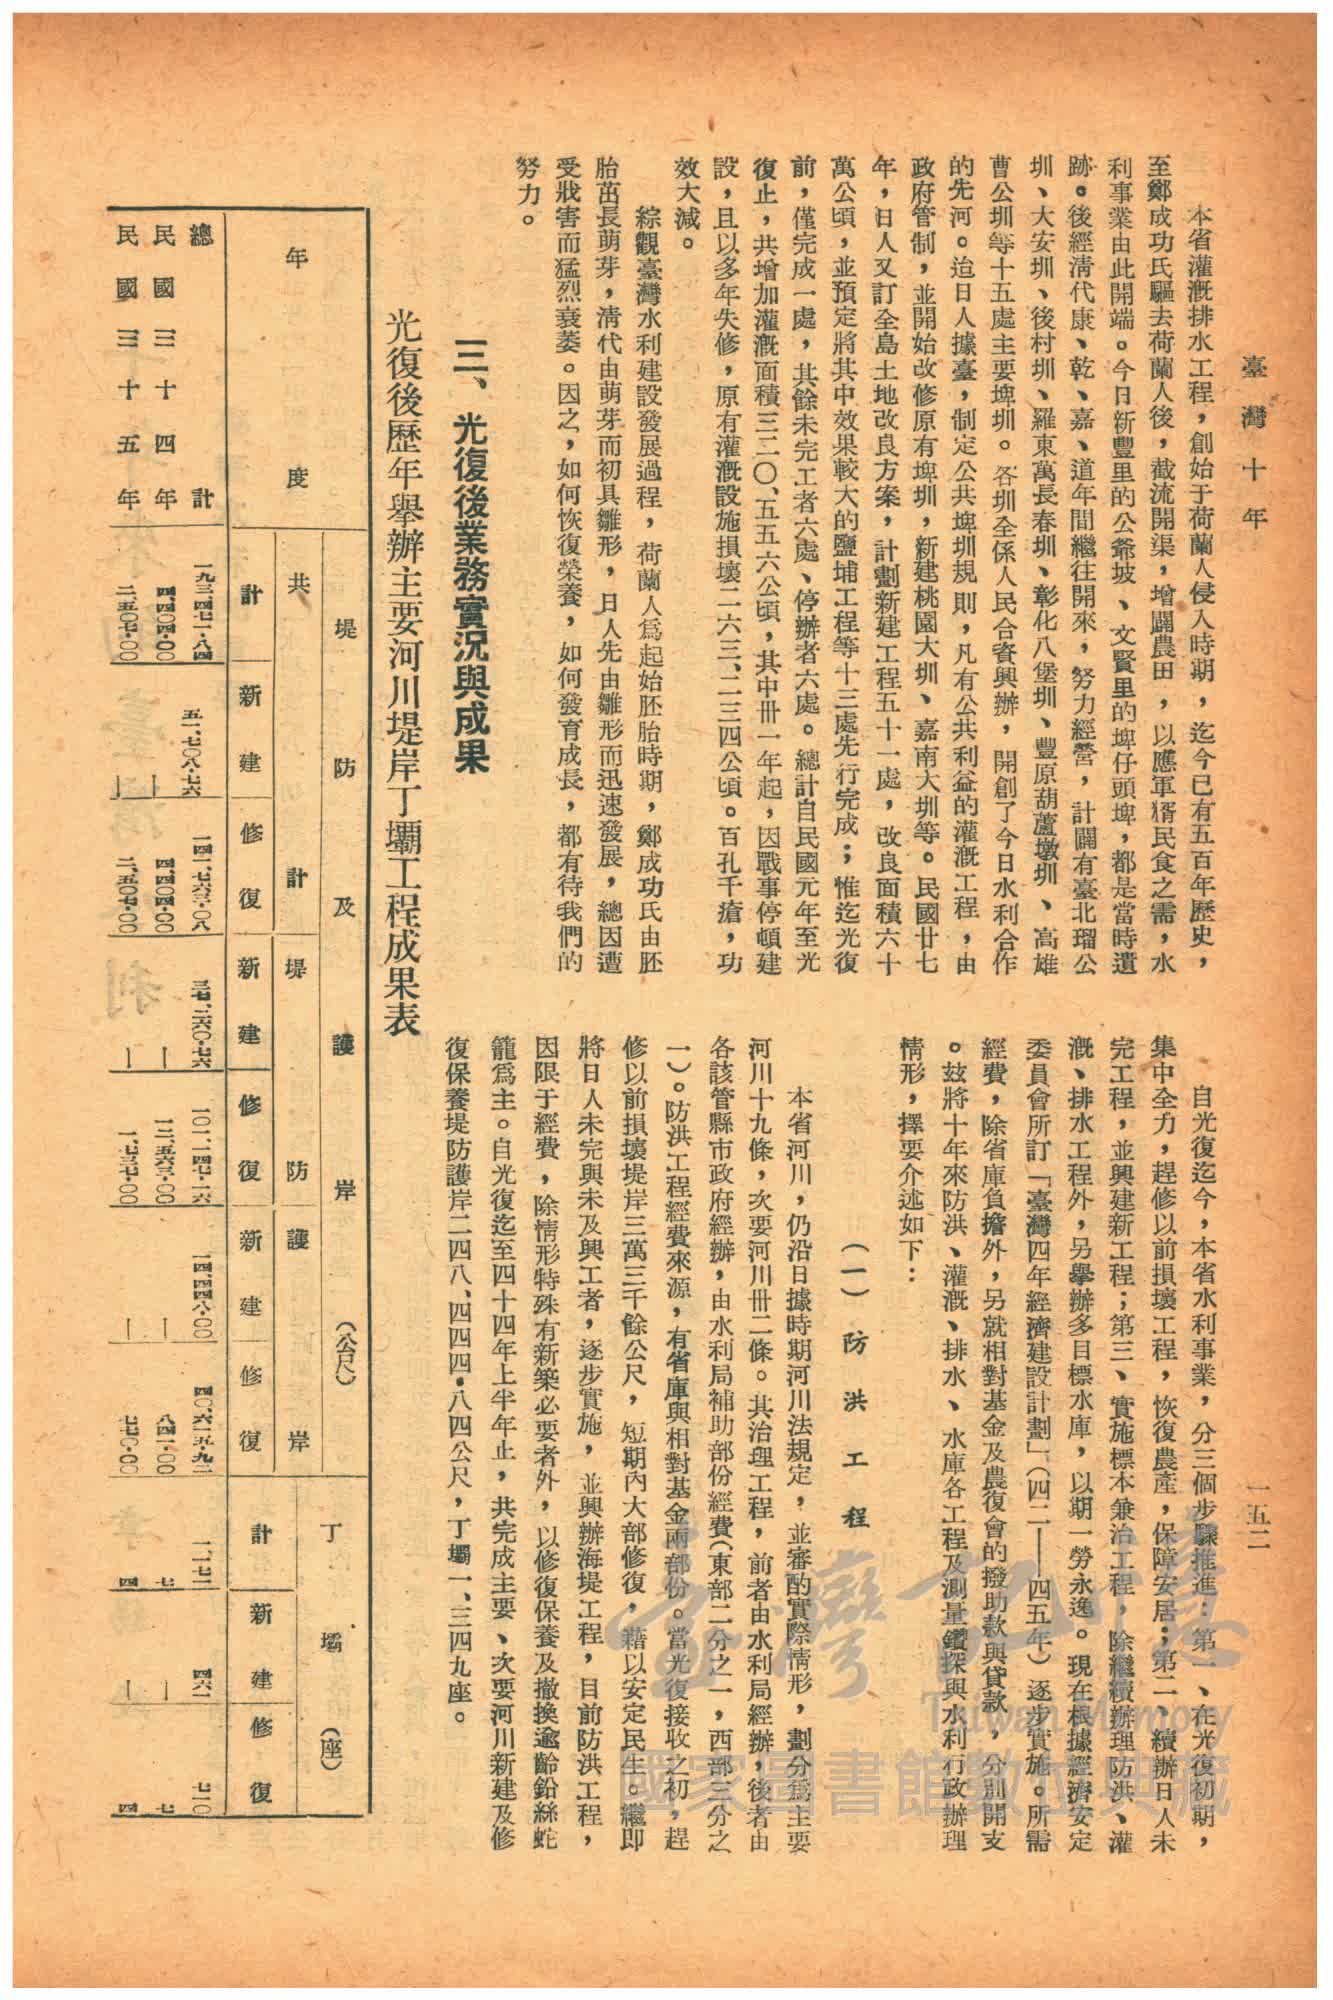 臺灣十年
一五二
本省灌漑排水工程，創始于荷蘭人侵入時期，迄今已有五百年歷史，
至鄭成功氏驅去荷蘭人後，截流開渠，增闢農田，以應軍糈民食之需，水
利事業由此開端。今日新豐里的公爺坡、文賢里的埤仔頭埤，都是當時遺
跡。後經淸代康、乾、嘉、道年間繼往開來，努力經營，計闢有臺北瑠公
圳、大安圳、後村圳、羅東萬長春圳、彰化八堡圳、豐原葫蘆墩圳、高雄
曹公圳等十五處主要埤圳。各圳全係人民合資興辦，開創了今日水利合作
的先河。迨日人據臺，制定公共埤圳規則，凡有公共利益的灌漑工程，由
政府管制，並開始改修原有埤圳，新建桃園大圳、嘉南大圳等。民國廿七
年，日人又訂全島土地改良方案，計劃新建工程五十一處，改良面積六十
萬公頃，並預定將其中效果較大的鹽埔工程等十三處先行完成；惟迄光復
前，僅完成一處，其餘未完工者六處、停辦者六處。總計自民國元年至光
復止，共增加灌漑面積三二〇、五五六公頃，其中卅一年起，因戰事停頓建
設，且以多年失修，原有灌漑設施損壞二六三、二三四公頃。百孔千瘡，功
效大減。
綜觀臺灣水利建設發展過程，荷蘭人爲起始胚胎時期，鄭成功氏由胚
胎茁長萌芽，淸代由萌芽而初具雛形，日人先由雛形而迅速發展，總因遭
受戕害而猛烈衰萎。因之，如何恢復榮養，如何發育成長，都有待我們的
努力。
三、光復後業務實況與成果
自光復迄今，本省水利事業，分三個步驟推進：第一、在光復初期，
集中全力，趕修以前損壞工程，恢復農產，保障安居；第二、續辦日人未
完工程，並興建新工程；第三、實施標本兼治工程，除繼續辦理防洪、灌
漑、排水工程外，另舉辦多目標水庫，以期一勞永逸。現在根據經濟安定
委員會所訂「臺灣四年經濟建設計劃」（四二——四五年）逐步實施。所需
經費，除省庫負擔外，另就相對基金及農復會的撥助款與貸款，分別開支
。玆將十年來防洪、灌漑、排水、水庫各工程及測量鑽探與水利行政辦理
情形，擇要介述如下：
（一）防洪工程
本省河川，仍沿日據時期河川法規定，並審酌實際情形，劃分爲主要
河川十九條，次要河川卅二條。其治理工程，前者由水利局經辦，後者由
各該管縣市政府經辦，由水利局補助部份經費（東部二分之一，西部三分之
一）。防洪工程經費來源，有省庫與相對基金兩部份。當光復接收之初，趕
修以前損壞堤岸三萬三千餘公尺，短期內大部修復，藉以安定民生。繼卽
將日人未完與未及興工者，逐步實施，並興辦海堤工程，目前防洪工程，
因限于經費，除情形特殊有新築必要者外，以修復保養及撤換逾齡鉛絲蛇
籠爲主。自光復迄至四十四年上半年止，共完成主要、次要河川新建及修
復保養堤防護岸二四八、四四四・八四公尺，丁壩一、三四九座。
光復後歷年舉辦主要河川堤岸丁壩工程成果表
年度 堤防及護岸（公尺） 丁壩（座）
共計 堤防 護岸
計 新建 修復 新建 修復 新建 修復 計 新建 修復
總計 一九三、四七一・八四 五一、七〇八・七六 一四一、七六三・〇八 三七、二六〇・七六 一〇一、一四七・一六 一四、四四八・〇〇 四〇、六一五・九二 一、一七一 四六一 七一〇
民國三十四年 四、四〇四・〇〇 — 四、四〇四・〇〇 — 三、五六三・〇〇 — 八四一・〇〇 七 — 七
民國三十五年 二、五〇七・〇〇 — 二、五〇七・〇〇 — 一、七三七・〇〇 — 七七〇・〇〇 四 — 四
臺灣記憶
Taiwan Memory
國家圖書館數位典藏